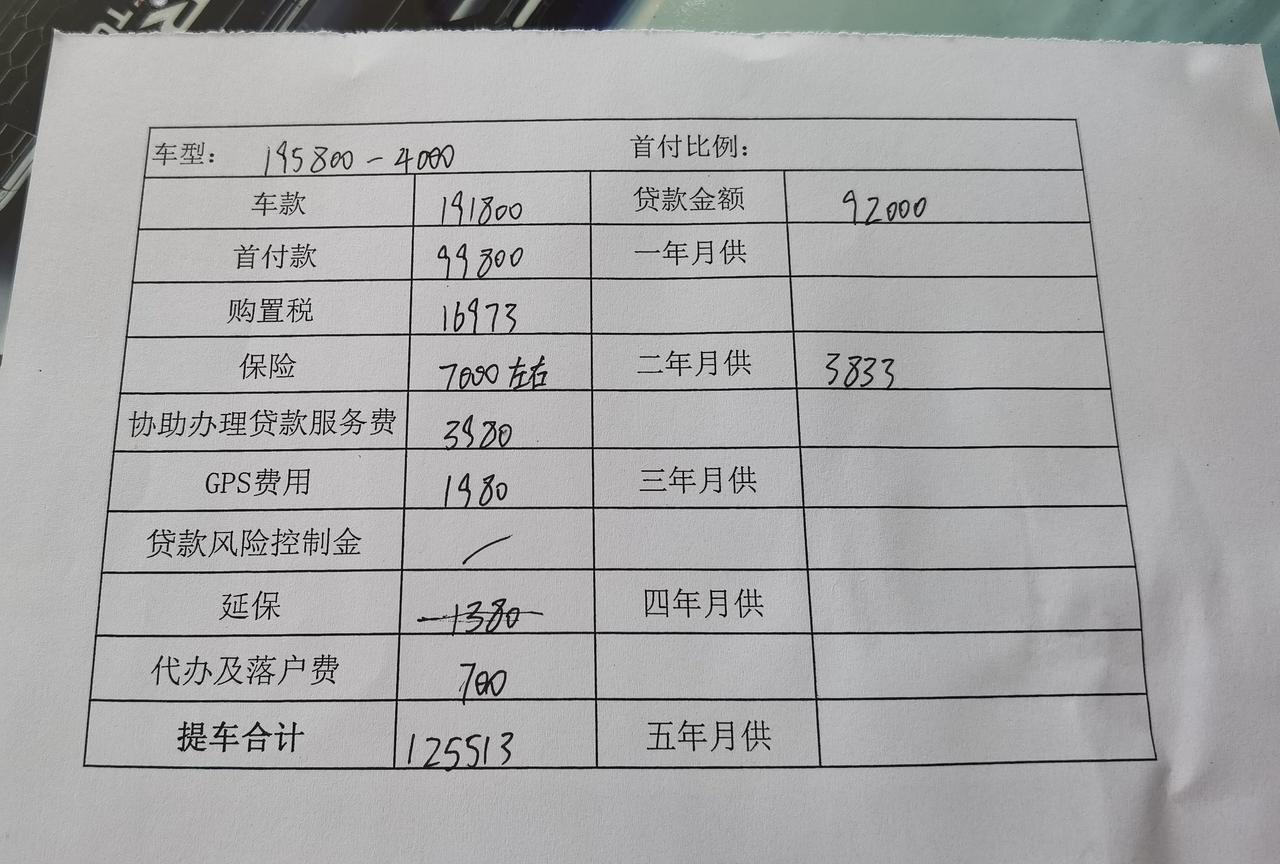 车型： 195800-4000 首付比例：
车款 191800 贷款金额 92000
首付款 99800 一年月供
购置税 16973
保险 7000左右 二年月供 3833
协助办理贷款服务费 3980
GPS费用 1980 三年月供
贷款风险控制金 /
延保 1380 四年月供
代办及落户费 700
提车合计 125513 五年月供